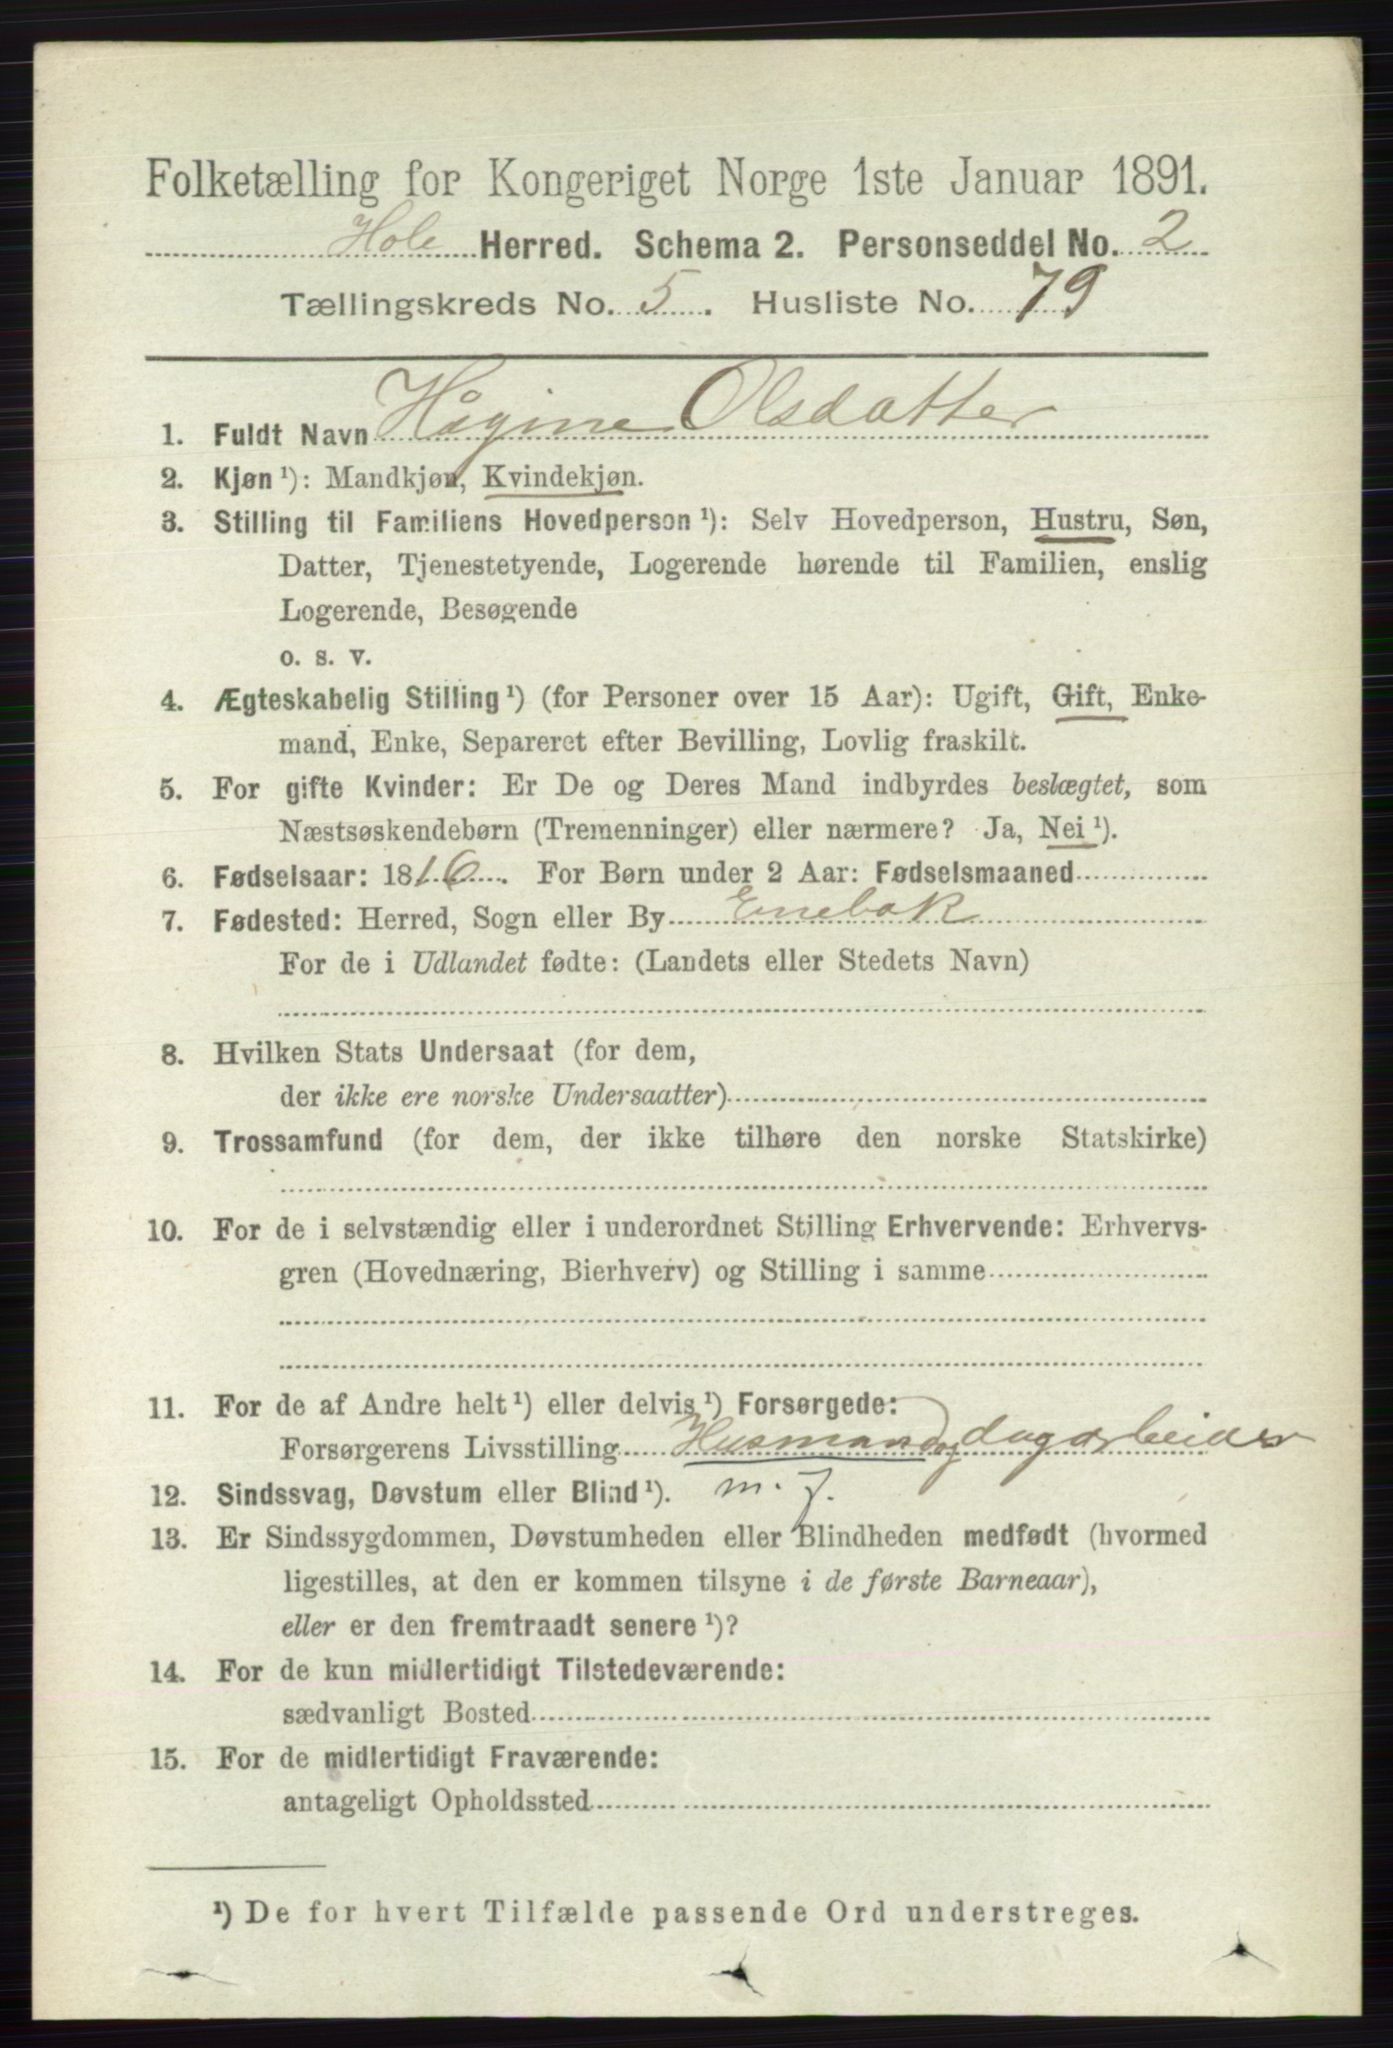 Folketælling for Kongeriget Norge 1ste Januar 1891.
Hole Herred. Schema 2. Personseddel No. 2
Tællingskreds No. 5. Husliste No. 79
1. Fuldt Navn Hågine Olsdatter
2. Kjøn ¹): Mandkjøn, Kvindekjøn.
3. Stilling til Familiens Hovedperson ¹): Selv Hovedperson, Hustru, Søn,
Datter, Tjenestetyende, Logerende hørende til Familien, enslig
Logerende, Besøgende
o. s. v.
4. Ægteskabelig Stilling ¹) (for Personer over 15 Aar): Ugift, Gift, Enke-
mand, Enke, Separeret efter Bevilling, Lovlig fraskilt.
5. For gifte Kvinder: Er De og Deres Mand indbyrdes beslægtet, som
Næstsøskendebørn (Tremenninger) eller nærmere? Ja, Nei ¹).
6. Fødselsaar: 1816. For Børn under 2 Aar: Fødselsmaaned
7. Fødested: Herred, Sogn eller By Enebak
For de i Udlandet fødte: (Landets eller Stedets Navn)
8. Hvilken Stats Undersaat (for dem,
der ikke ere norske Undersaatter)
9. Trossamfund (for dem, der ikke tilhøre den norske Statskirke)
10. For de i selvstændig eller i underordnet Stilling Erhvervende: Erhvervs-
gren (Hovednæring, Bierhverv) og Stilling i samme
11. For de af Andre helt ¹) eller delvis ¹) Forsørgede:
Forsørgerens Livsstilling Husmand og dagarbeider
12. Sindssvag, Døvstum eller Blind ¹). m. j.
13. Er Sindssygdommen, Døvstumheden eller Blindheden medfødt (hvormed
ligestilles, at den er kommen tilsyne i de første Barneaar),
eller er den fremtraadt senere ¹)?
14. For de kun midlertidigt Tilstedeværende:
sædvanligt Bosted
15. For de midlertidigt Fraværende:
antageligt Opholdssted
¹) De for hvert Tilfælde passende Ord understreges.